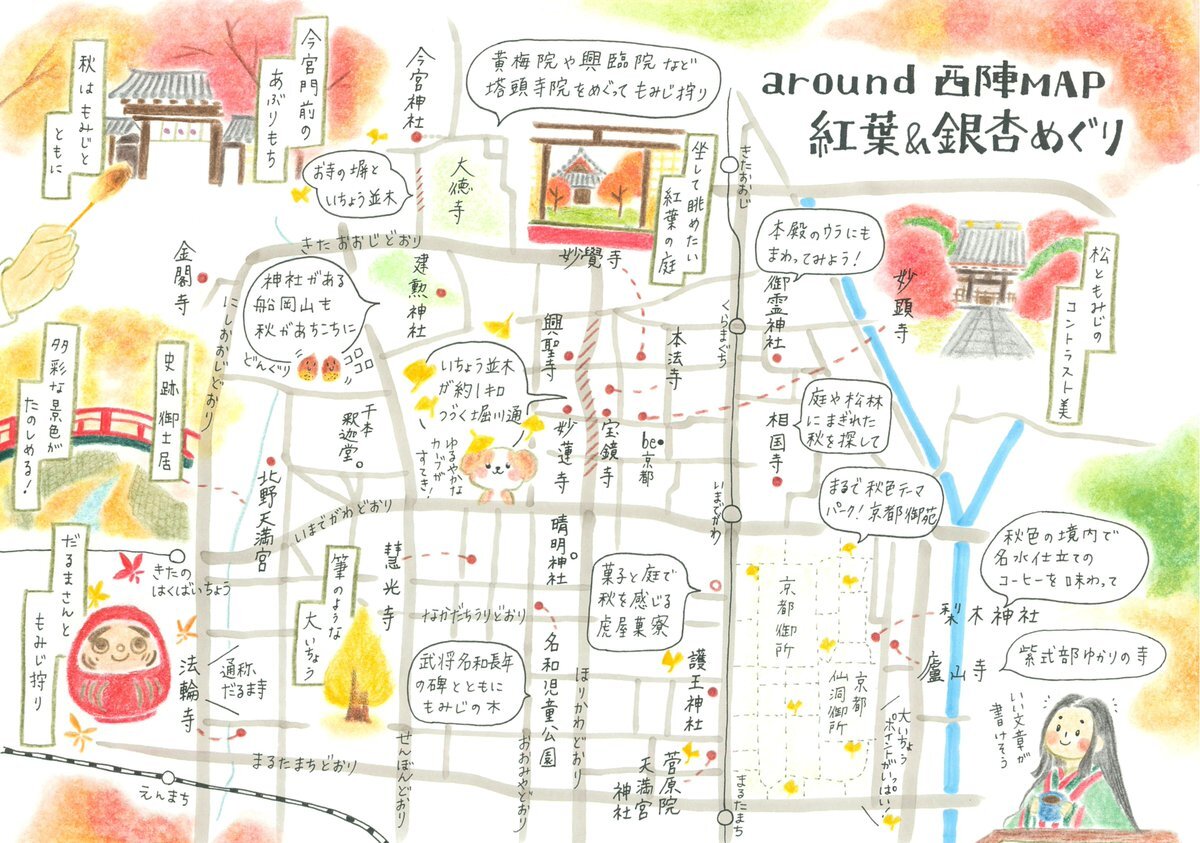 around 西陣MAP
紅葉&銀杏めぐり
今宮門前の
あぶりもち
秋はもみじと
ともに
今宮神社
黄梅院や興臨院など
塔頭寺院をめぐってもみじ狩り
お寺の塀と
いちょう並木
大徳寺
坐して眺めたい
紅葉の庭
妙覺寺
きたおおじ
きたおおじどおり
本殿のウラにも
まわってみよう!
御霊神社
妙顕寺
松ともみじの
コントラスト美
金閣寺
にしおおじどおり
神社がある
船岡山も
秋があちこちに
どんぐり
コロ
コロ
建勲神社
くらまぐち
興聖寺
本法寺
いちょう並木
が約1キロ
つづく堀川通
ゆるやかな
カーブが
すてき!
妙蓮寺
宝鏡寺
be京都
庭や松林
にまぎれた
秋を探して
相国寺
史跡御土居
多彩な景色が
たのしめる!
千本
釈迦堂
北野天満宮
いまでがわどおり
いまでがわ
まるで秋色テーマ
パーク!京都御苑
晴明神社
秋色の境内で
名水仕立ての
コーヒーを味わって
梨木神社
きたの
はくばいちょう
慧光寺
筆のような
大いちょう
なかだちうりどおり
菓子と庭で
秋を感じる
虎屋菓寮
京都御所
京都
仙洞御所
紫式部ゆかりの寺
盧山寺
いい文章が
書けそう
だるまさんと
もみじ狩り
法輪寺
通称
だるま寺
武将名和長年
の碑とともに
もみじの木
名和児童公園
ほりかわどおり
護王神社
大いちょう
ポイントがいっぱい!
菅原院
天満宮
神社
まるたまちどおり
せんぼんどおり
おおみやどおり
まるたまち
えんまち